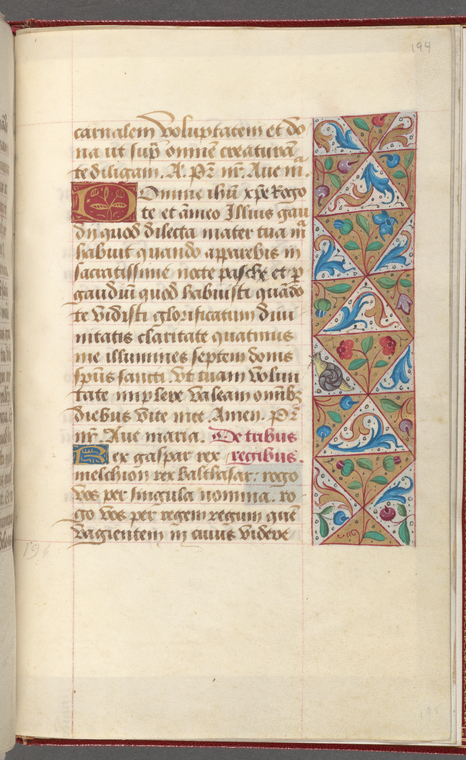 194
carnalem voluptatem et do
na ut sup omnem creaturam
te diligam. A. Pr nr. Aue m.
Domine ihu xpe Rogo
te et ameo Illius gau
dii quod dilecta mater tua m
habuit quando aparebis in
sacratissime nocte pasche et p
gaudiu quod habuisti quado
te vidisti glorificatum diui
nitatis claritate quatinus
me illumines septem donis
spus sancti vt tuam volun
tate implere valeam omib
diebus vite mee Amen. Pr
nr. Aue maria. De tribus
Rex gaspar rex regibus.
melchion rex balthasar: rogo
vos per singula nomina. ro
go vos per regem regum que
vagientem in cunis videre
196